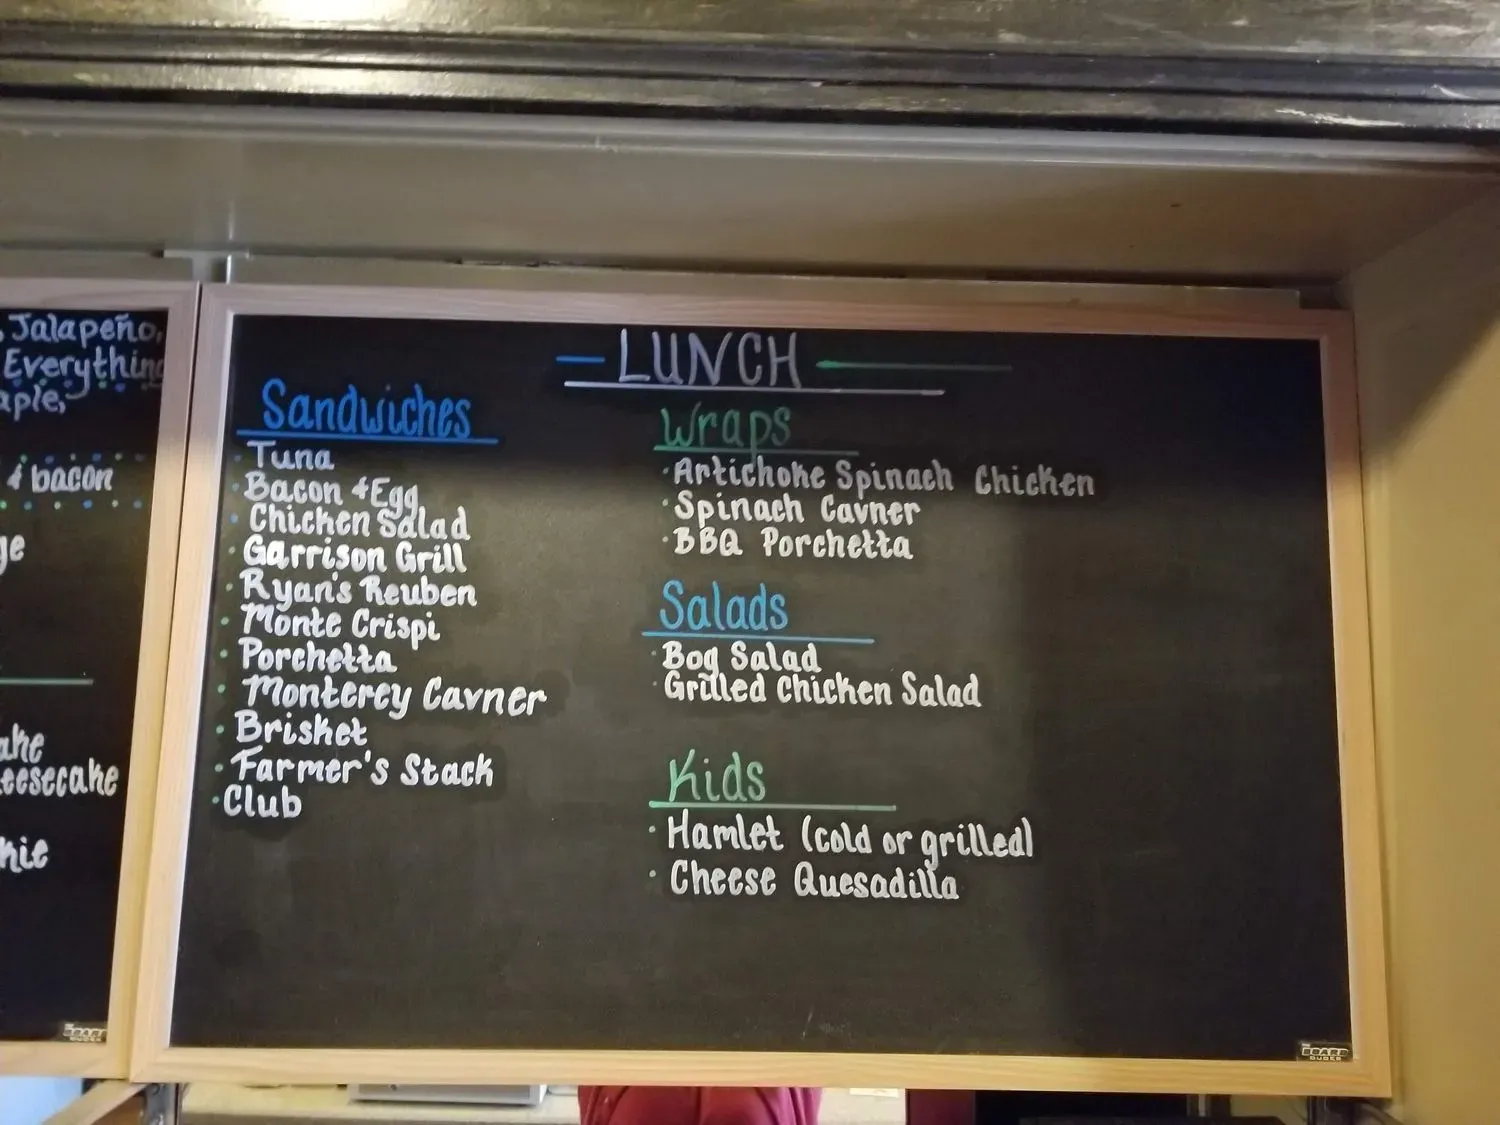 Jalapeño,
Everything
aple,
& bacon
ake
eesecake
LUNCH
Sandwiches
Tuna
Bacon & Egg
Chicken Salad
Garrison Grill
Ryan's Reuben
Monte Crispi
Porchetta
Monterey Cavner
Brisket
Farmer's Stack
Club
Wraps
Artichoke Spinach Chicken
Spinach Cavner
BBQ Porchetta
Salads
Bog Salad
Grilled Chicken Salad
Kids
Hamlet (cold or grilled)
Cheese Quesadilla
THE
BOARD
DUDES
THE
BOARD
DUDES